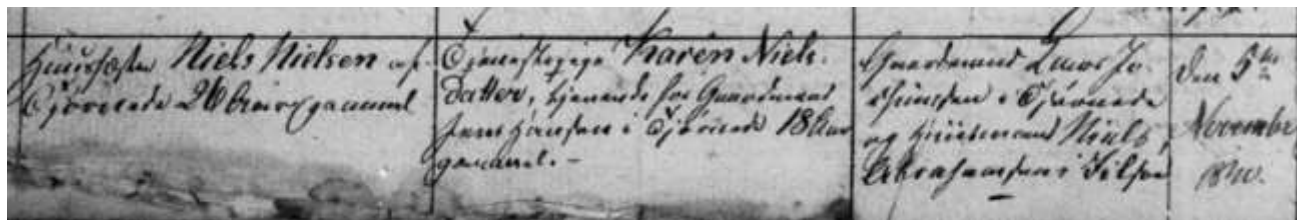 Huusfæster Niels Nielsen af
Tjørnede 26 Aar gammel
Tjenestepige Karen Niels-
datter, tjenende hos Gaardmand
Jens Hansen i Tjørnede 18 Aar
gammel. -
Gaardmand Lars Jo-
hansen i Tjørnede
og Huusmand Niels
Abrahamsen i
den 5te
November